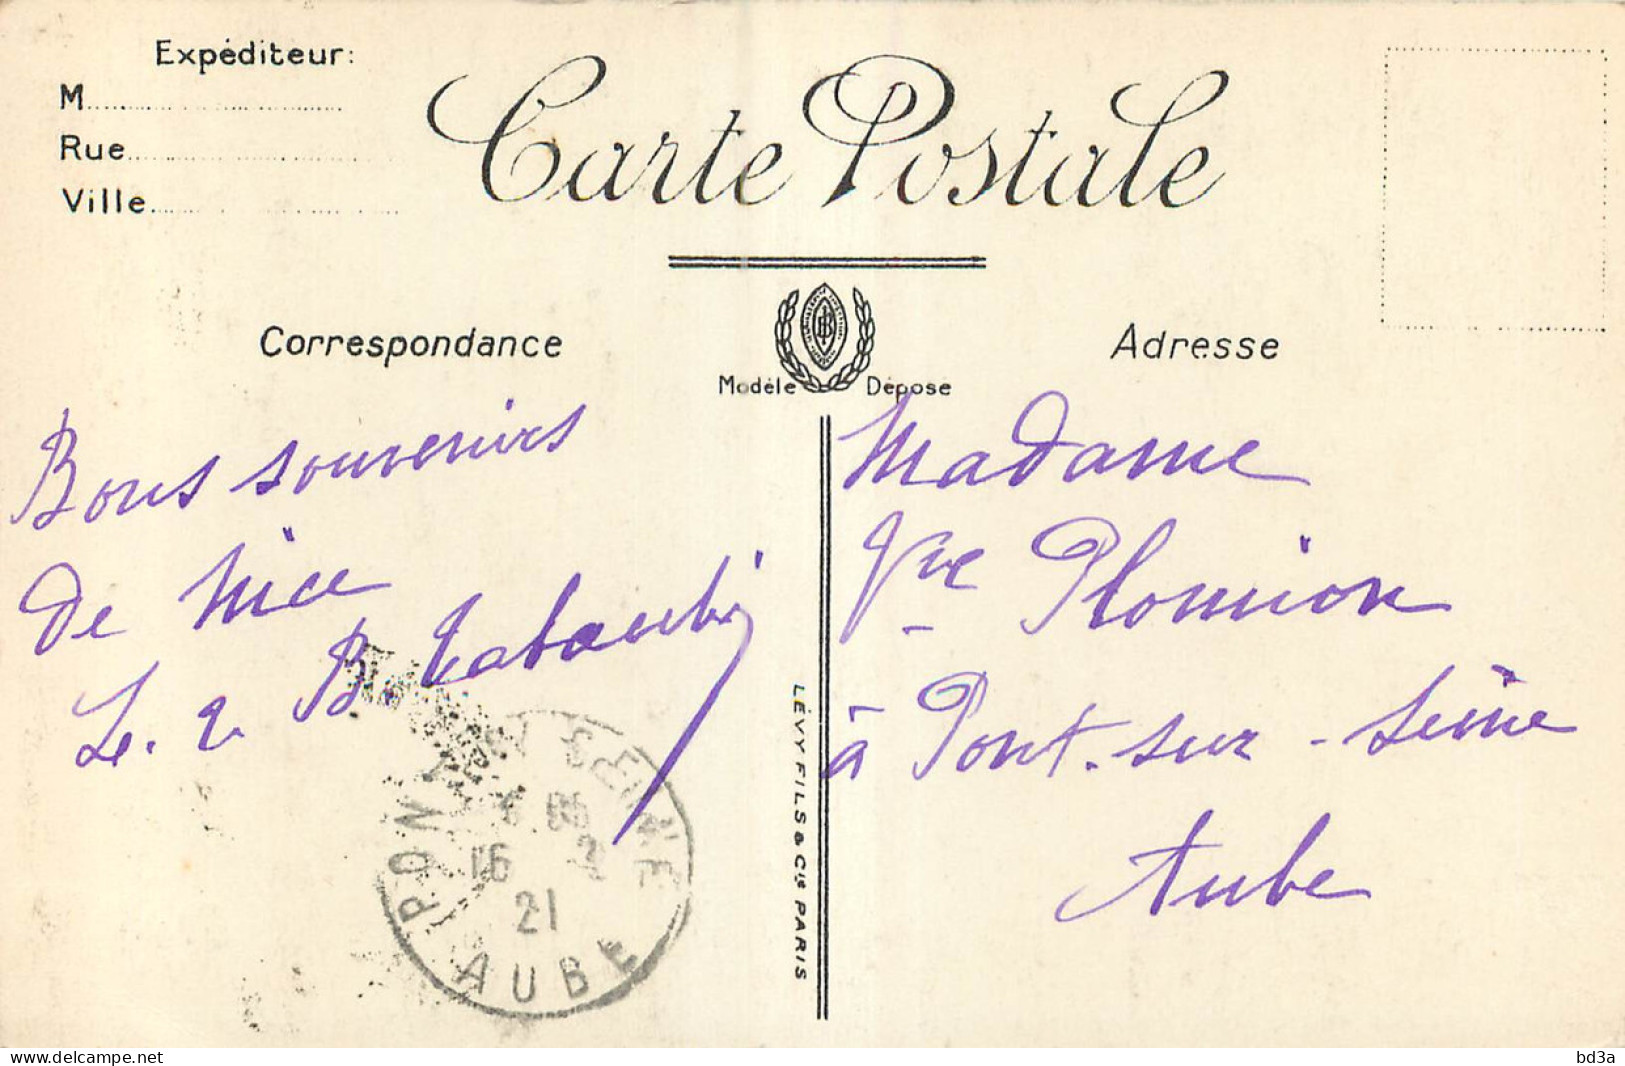 Expéditeur:
M
Rue
Ville
Carte Postale
Correspondance
Modèle Déposé
Adresse
Bons souvenirs
de Nice
Madame
Vve Plomion
à Pont-sur-Seine
Aube
LÉVY FILS & Cie PARIS
PONT SUR SEINE
16 2
21
AUBE
delcampe.net
bd3a